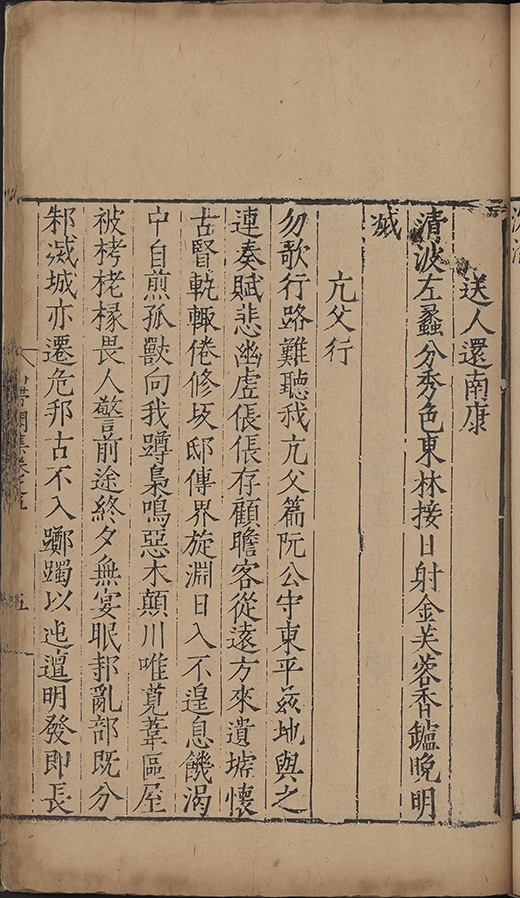 送人還南康
清波左蠡分秀色東林接日射金芙蓉香鑪晚明
滅
亢父行
勿歌行路難聽我亢父篇阮公守東平茲地與之
連奏賦悲幽虛倀倀存顧瞻客從遠方來遺墟懷
古賢軌輙倦修坂邸傳界旋淵日入不遑息饑渴
中自煎孤獸向我蹲梟鳴惡木顛川唯莧葦區屋
被栲栳椽畏人警前途終夕無宴眠邿亂部既分
邾滅城亦遷危邦古不入躑躅以迍邅明發即長
集卷之五
五